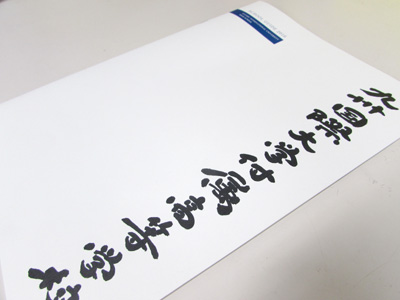 九州国際大学付属高等学校